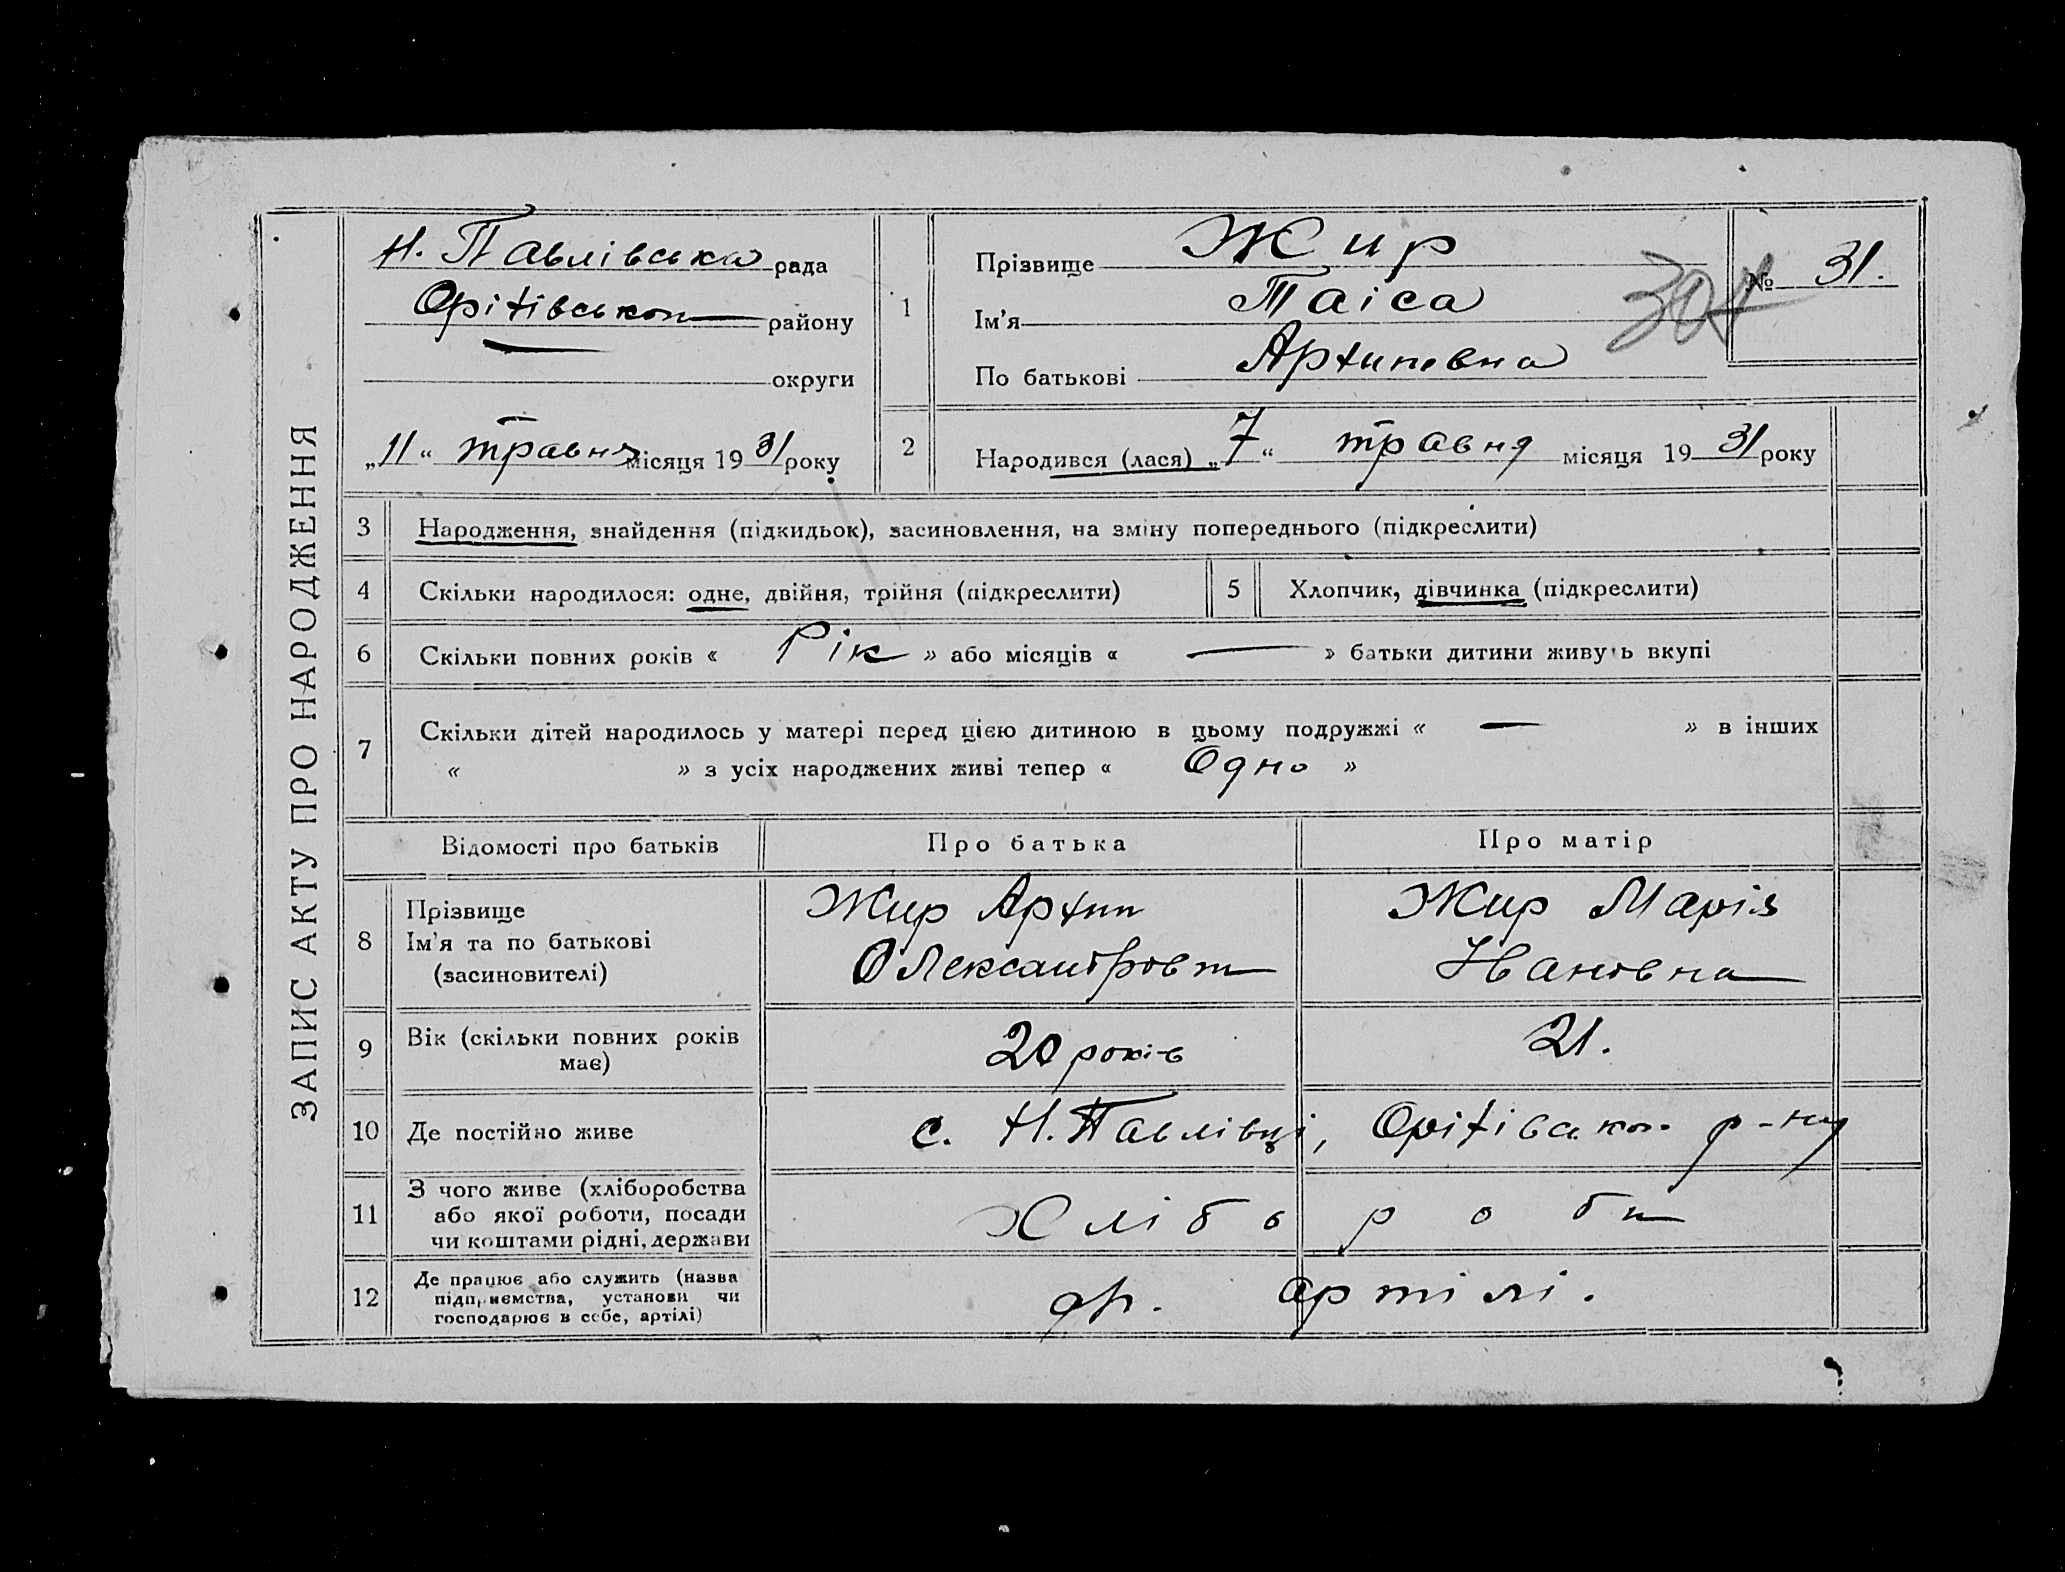 ЗАПИС АКТУ ПРО НАРОДЖЕННЯ
Н. Павлівська рада
Оріхівського району
округи
„11“ травня місяця 1931 року
1
Прізвище Жир
Ім'я Таіса
По батькові Архиповна
№ 31.
2
Народився (лася) „7“ травня місяця 1931 року
3 Народження, знайдення (підкидьок), засиновлення, на зміну попереднього (підкреслити)
4 Скільки народилося: одне, двійня, трійня (підкреслити) 5 Хлопчик, дівчинка (підкреслити)
6 Скільки повних років « Рік » або місяців « — » батьки дитини живуть вкупі
7 Скільки дітей народилось у матері перед цією дитиною в цьому подружжі « — » в інших
« » з усіх народжених живі тепер « Одно »
Відомості про батьків Про батька Про матір
8 Прізвище
Ім'я та по батькові
(засиновителі)
Жир Архип
Олександров
Жир Марія
Ивановна
9 Вік (скільки повних років
має)
20 років 21.
10 Де постійно живе с. Н. Павлівці, Оріхівсько р-ну
11 З чого живе (хліборобства
або якої роботи, посади
чи коштами рідні, держави
Хлібороби
12 Де працює або служить (назва
підприємства, установи чи
господарює в себе, артілі)
артілі.